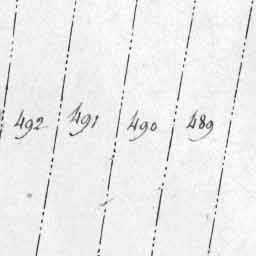 492 491 490 489